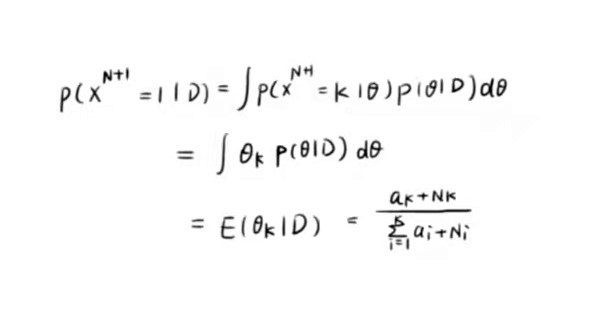 p(x^{N+1} = 1 | D) = ∫ p(x^{N+1} = k | θ) p(θ | D) dθ
= ∫ θ_k p(θ | D) dθ
= E(θ_k | D) = \frac{a_k + N_k}{\sum_{i=1}^{k} a_i + N_i}